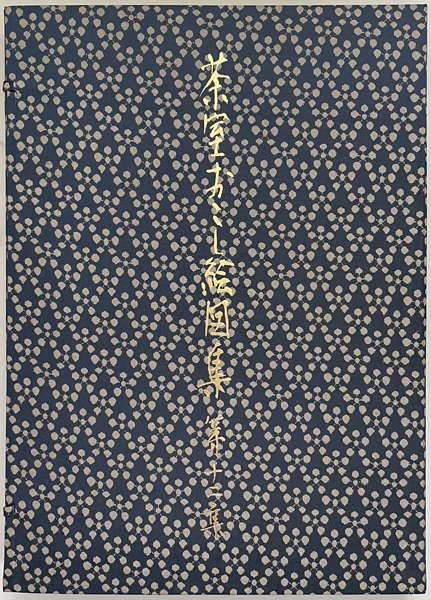 茶室おこし絵図集 第十二集